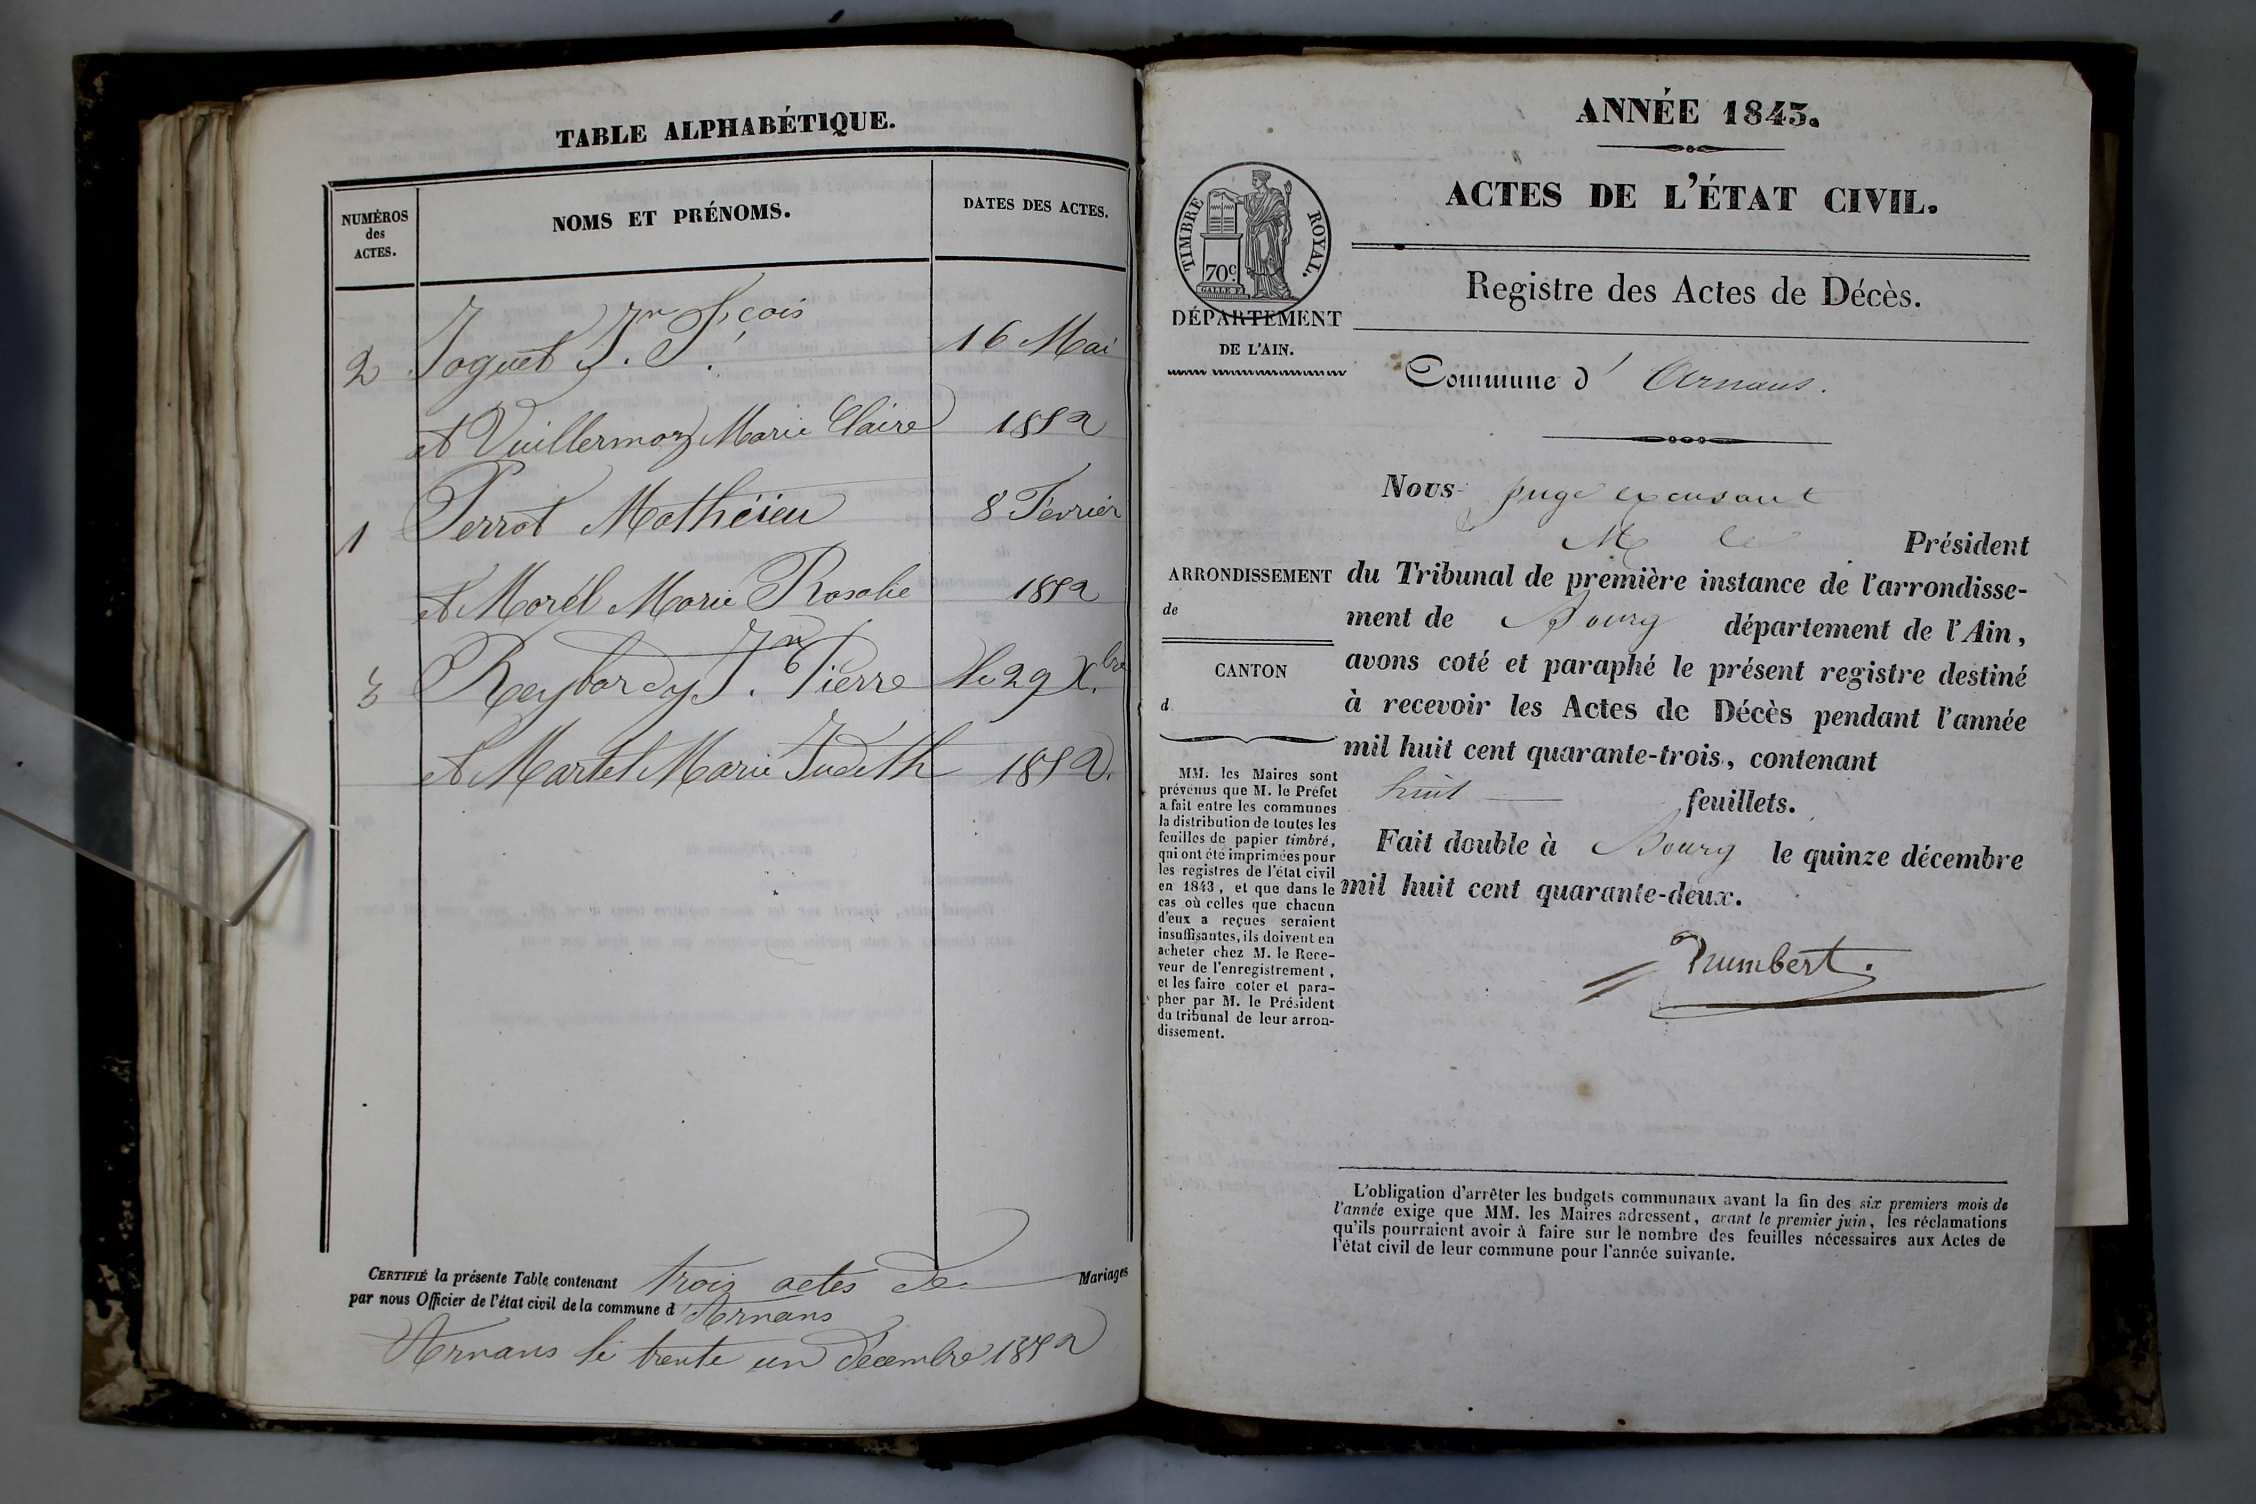 TABLE ALPHABÉTIQUE.
NUMÉROS
des
ACTES.
NOMS ET PRÉNOMS.
DATES DES ACTES.
2 Joguet Jn. Fçois 16 Mai
et Vuillermoz Marie Claire 1852
1 Perrot Mathéieu 8 Février
et Morel Marie Rosalie 1852
3 Reybordy Jn. Pierre le 29 Xbre
et Martel Marie Judith 1852.
CERTIFIÉ la présente Table contenant trois actes de Mariages
par nous Officier de l'état civil de la commune d'Arnans
Arnans le trente un décembre 1852
ANNÉE 1843.
ACTES DE L'ÉTAT CIVIL.
TIMBRE ROYAL.
70c
DÉPARTEMENT
DE L'AIN.
Registre des Actes de Décès.
Commune d' Arnans.
Nous juge excusant
M le Président
ARRONDISSEMENT
de
CANTON
d
du Tribunal de première instance de l'arrondisse-
ment de Bourg département de l'Ain,
avons coté et paraphé le présent registre destiné
à recevoir les Actes de Décès pendant l'année
mil huit cent quarante-trois, contenant
huit feuillets.
Fait double à Bourg le quinze décembre
mil huit cent quarante-deux.
MM. les Maires sont
prévenus que M. le Préfet
a fait entre les communes
la distribution de toutes les
feuilles de papier timbré,
qui ont été imprimées pour
les registres de l'état civil
en 1843, et que dans le
cas où celles que chacun
d'eux a reçues seraient
insuffisantes, ils doivent en
acheter chez M. le Rece-
veur de l'enregistrement,
et les faire coter et para-
pher par M. le Président
du tribunal de leur arron-
dissement.
L'obligation d'arrêter les budgets communaux avant la fin des six premiers mois de
l'année exige que MM. les Maires adressent, avant le premier juin, les réclamations
qu'ils pourraient avoir à faire sur le nombre des feuilles nécessaires aux Actes de
l'état civil de leur commune pour l'année suivante.